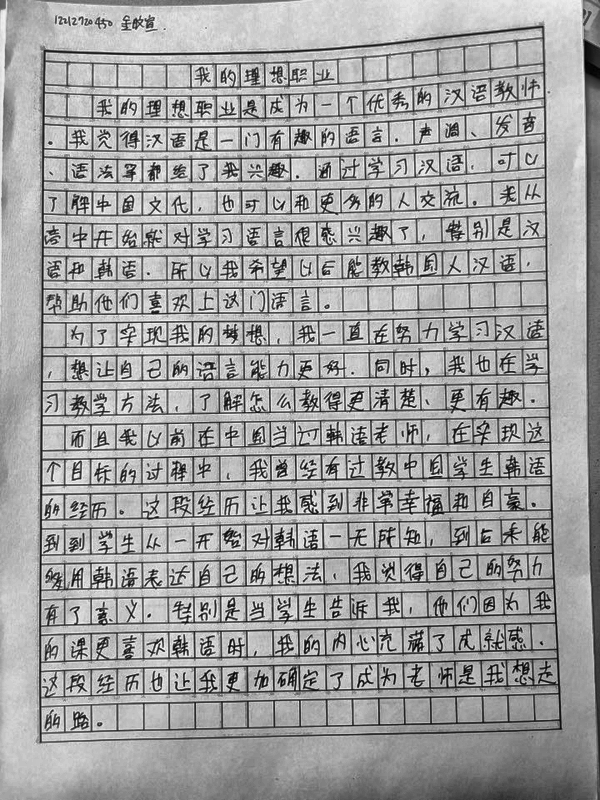 12212720450 金旼宣
我的理想职业
我的理想职业是成为一个优秀的汉语教师
。我觉得汉语是一门有趣的语言.声调、发音
、语法等都给了我兴趣。通过学习汉语,可以
了解中国文化,也可以和更多的人交流。我从
高中开始就对学习语言很感兴趣了,特别是汉
语和韩语.所以我希望以后能教韩国人汉语,
帮助他们喜欢上这门语言。
为了实现我的梦想,我一直在努力学习汉语
,想让自己的语言能力更好.同时,我也在学
习教学方法,了解怎么教得更清楚、更有趣.
而且我以前在中国当过韩语老师,在实现这
个目标的过程中,我曾经有过教中国学生韩语
的经历。这段经历让我感到非常幸福和自豪。
到到学生从一开始对韩语一无所知,到后来能
够用韩语表达自己的想法,我觉得自己的努力
有了意义.特别是当学生告诉我,他们因为我
的课更喜欢韩语时,我的内心充满了成就感.
这段经历也让我更加确定了成为老师是我想走
的路。